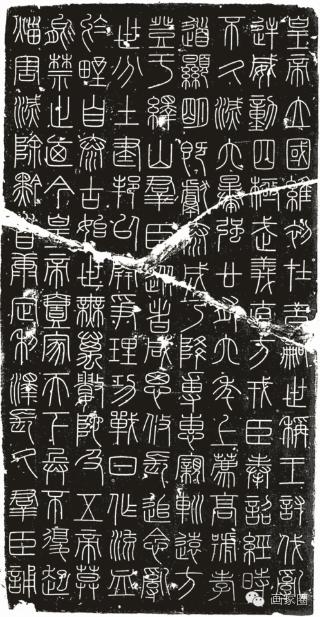 皇帝立國維初在昔嗣世稱王討伐亂
逆威動四極武義直方戎臣奉詔經時
不久滅六暴強廿有六年上薦高號孝
道顯明既獻泰成乃降專惠親巡遠方
登于繹山群臣從者咸思攸長追念亂
世分土建邦以開爭理功戰日作流血
於野自泰古始世無萬數陀及五帝莫
能禁止迺今皇帝壹家天下兵不復起
災害滅除黔首康定利澤長久群臣誦
画家圈